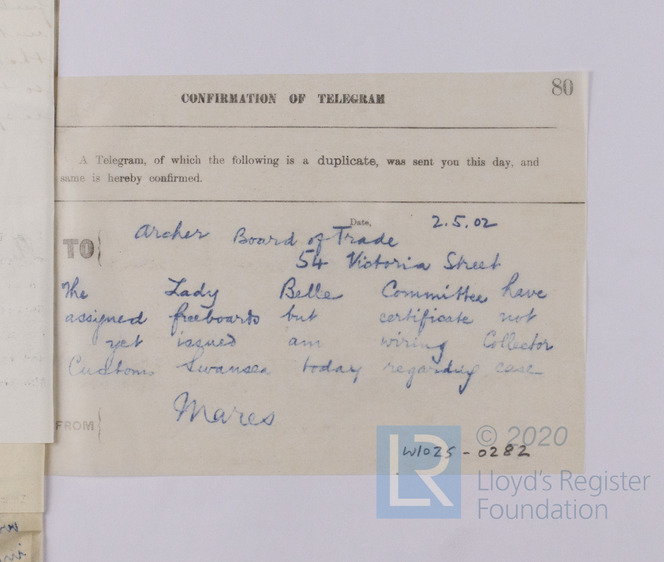 80
CONFIRMATION OF TELEGRAM
A Telegram, of which the following is a duplicate, was sent you this day, and
same is hereby confirmed.
Date, 2.5.02
TO Archer Board of Trade
54 Victoria Street
The Lady Belle Committee have
assigned freeboards but certificate not
yet issued am wiring Collector
Customs Swansea today regarding case
FROM Mares
W1025-0282
© 2020
LR Lloyd's Register
Foundation